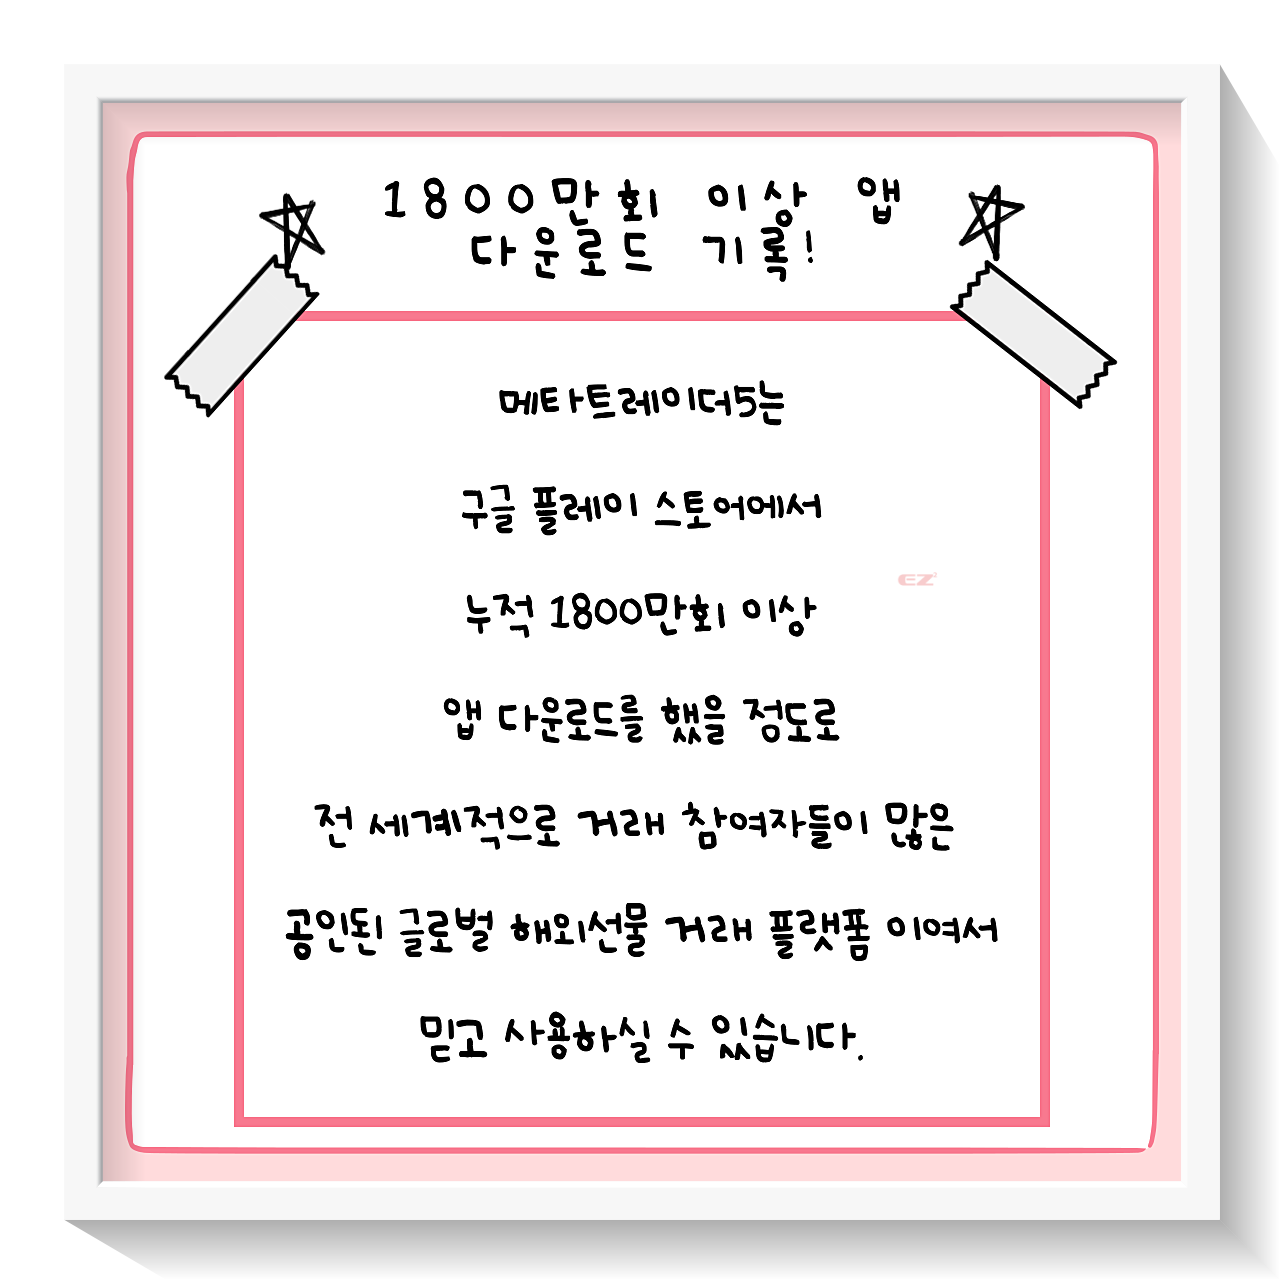 1800만회 이상 앱
다운로드 기록!
메타트레이더5는
구글 플레이 스토어에서
EZ
누적 1800만회 이상
앱 다운로드를 했을 정도로
전 세계적으로 거래 참여자들이 많은
공인된 글로벌 해외선물 거래 플랫폼 이여서
믿고 사용하실 수 있습니다.